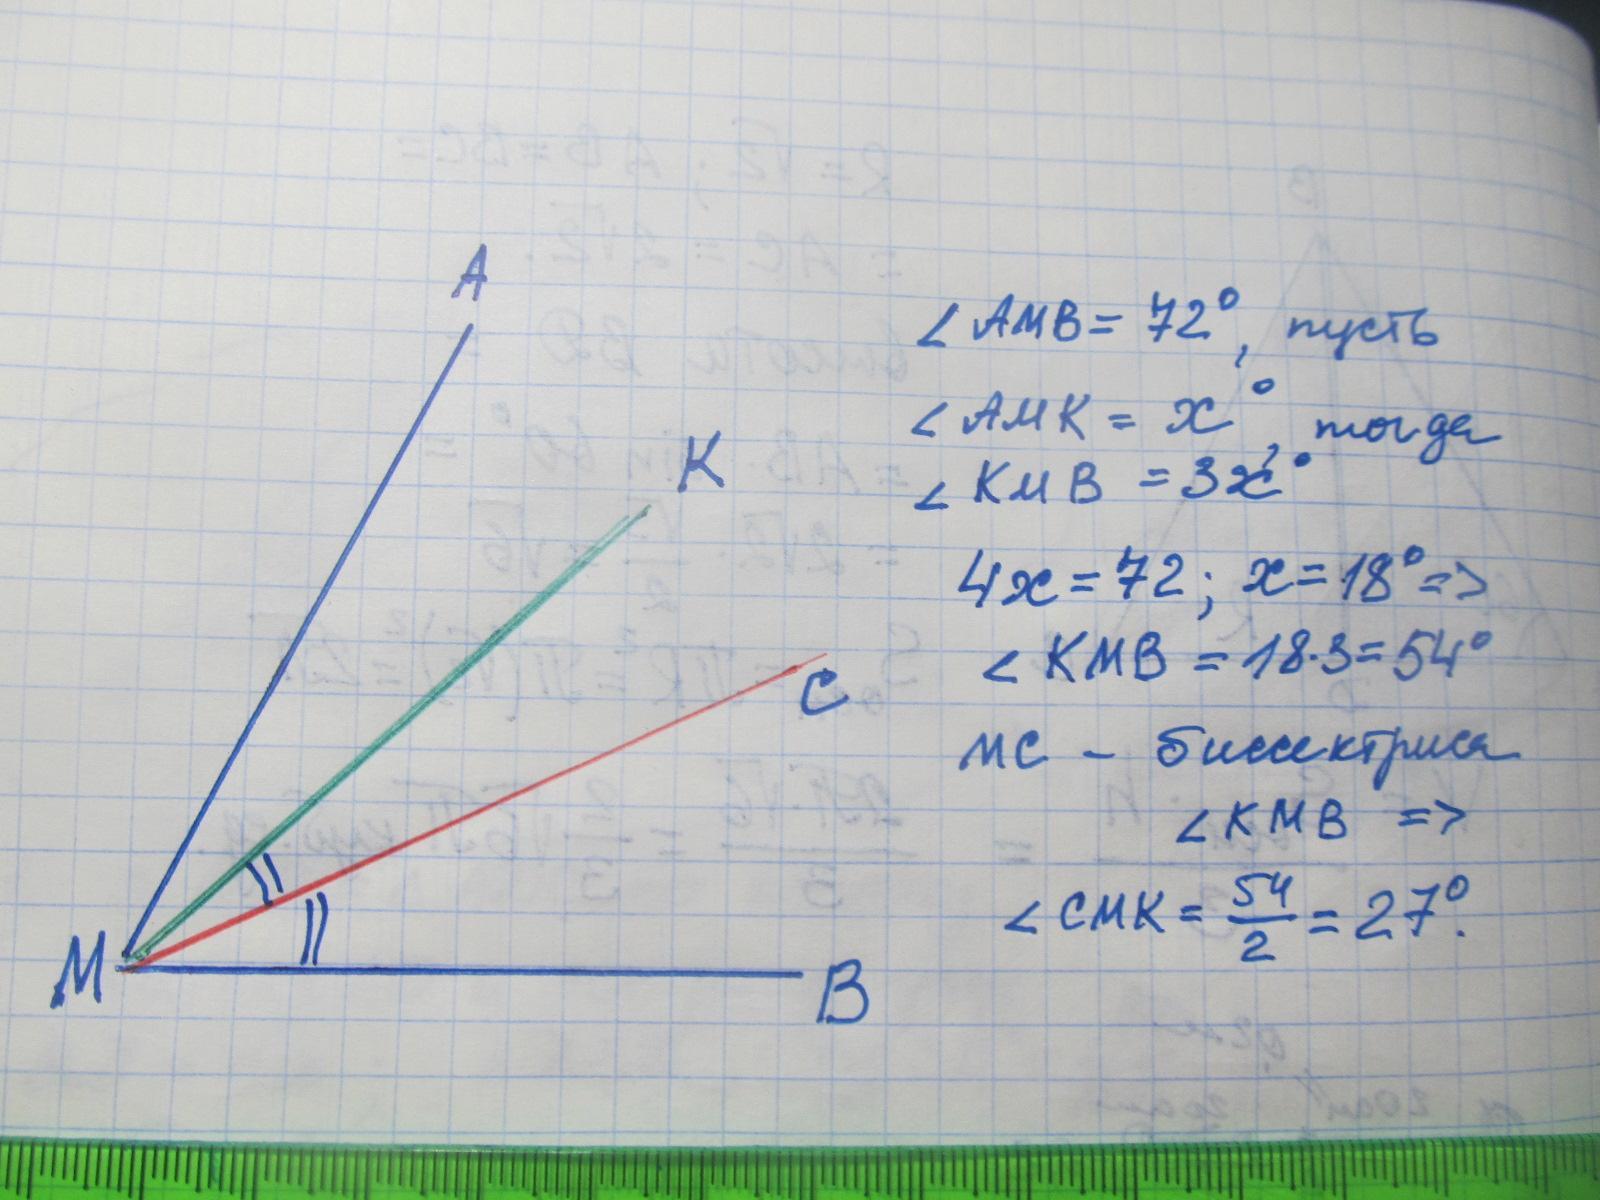 A
K
C
M
B
∠AMB = 72°, пусть
∠AMK = x°, тогда
∠KMB = 3x°
4x = 72; x = 18° =>
∠KMB = 18·3 = 54°
MC – биссектриса
∠KMB =>
∠CMK = 54/2 = 27°.